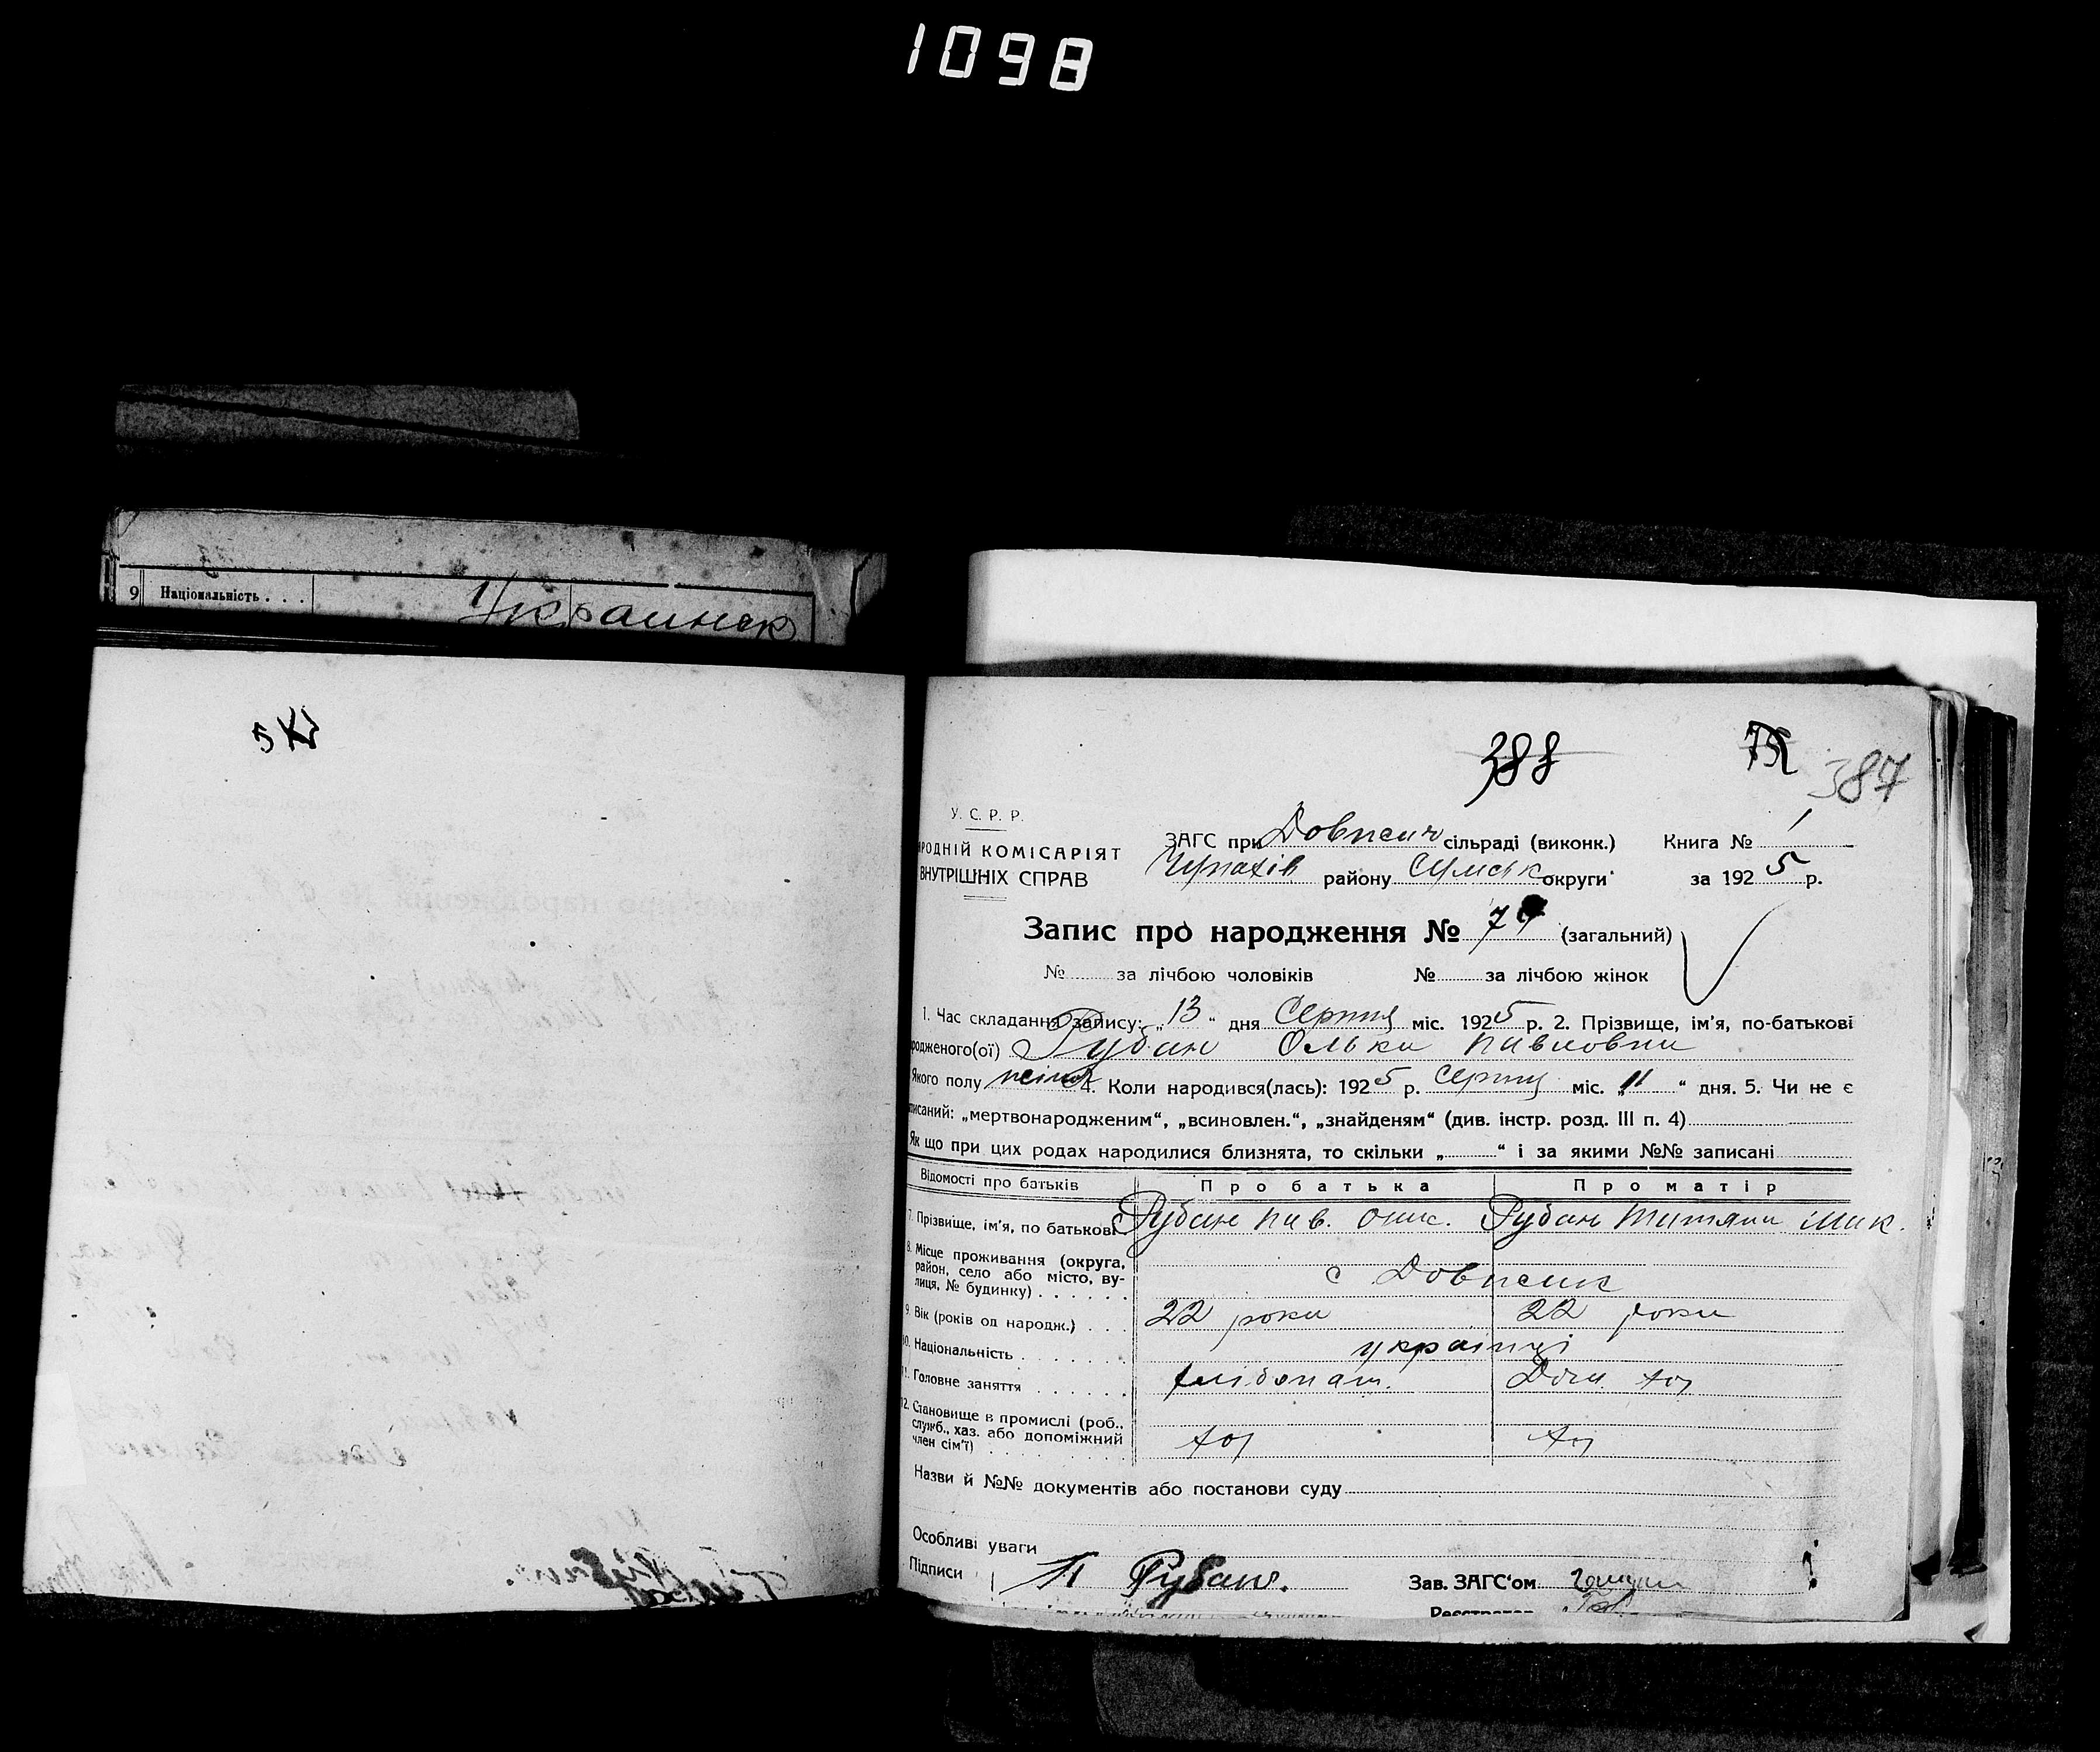 1098
9 Національність . . .
Украинск
388
387
У. С. Р. Р.
РОДНІЙ КОМІСАРІЯТ
ВНУТРІШНІХ СПРАВ
ЗАГС при сільраді (виконк.) Книга № 1
району Сумськ округи за 1925 р.
Запис про народження № (загальний)
№ за лічбою чоловіків № за лічбою жінок
1. Час складання запису: „13“ дня Серпня міс. 1925 р. 2. Прізвище, ім'я, по-батькові
родженого(ої) Рубан Ольки Павловни
Якого полу жіноч 4. Коли народився(лась): 1925 р. серпня міс. „11“ дня. 5. Чи не є
писаний: „мертвонародженим“, „всиновлен.“, „знайденям“ (див. інстр. розд. III п. 4)
Як що при цих родах народилися близнята, то скільки „ “ і за якими №№ записані
Відомості про батьків Про батька Про матір
7. Прізвище, ім'я, по батькові Рубан Пав. Онис. Рубан Титяни Мик.
8. Місце проживання (округа,
район, село або місто, ву-
лиця, № будинку) . . . . . .
с
9. Вік (років од народж.) . . . 22 роки 22 роки
10. Національність . . . . . . . українці
11. Головне заняття . . . . . . хлібопаш. Дом.
12. Становище в промислі (роб.,
служб., хаз. або допоміжний
член сім'ї) . . . . . . . .
Назви й №№ документів або постанови суду
Особливі уваги
Підписи П Рубан. Зав. ЗАГС'ом
Реєстратор